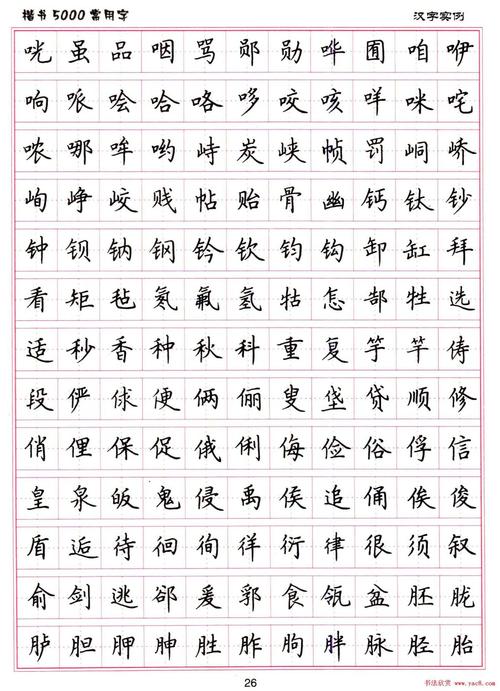 楷书5000常用字 汉字实例
咣 虽 品 咽 骂 郧 勋 哗 囿 咱 咿
响 哌 哙 哈 咯 哆 咬 咳 咩 咪 咤
哝 哪 哞 哟 峙 炭 峡 帧 罚 峒 峤
峋 峥 峧 贱 帖 贻 骨 幽 钙 钛 钞
钟 钡 钠 钢 钤 钦 钧 钩 卸 缸 拜
看 矩 毡 氡 氟 氢 牯 怎 郜 牲 选
适 秒 香 种 秋 科 重 复 竽 竿 俦
段 俨 俅 便 俩 俪 叟 垡 贷 顺 修
俏 俚 保 促 俄 俐 侮 俭 俗 俘 信
皇 泉 皈 鬼 侵 禹 侯 追 俑 俟 俊
盾 逅 待 徊 徇 徉 衍 律 很 须 叙
俞 剑 逃 郤 爰 郛 食 瓴 盆 胚 胧
胪 胆 胛 胂 胜 胙 朐 胖 脉 胫 胎
26
书法欣赏 www.yac8.com